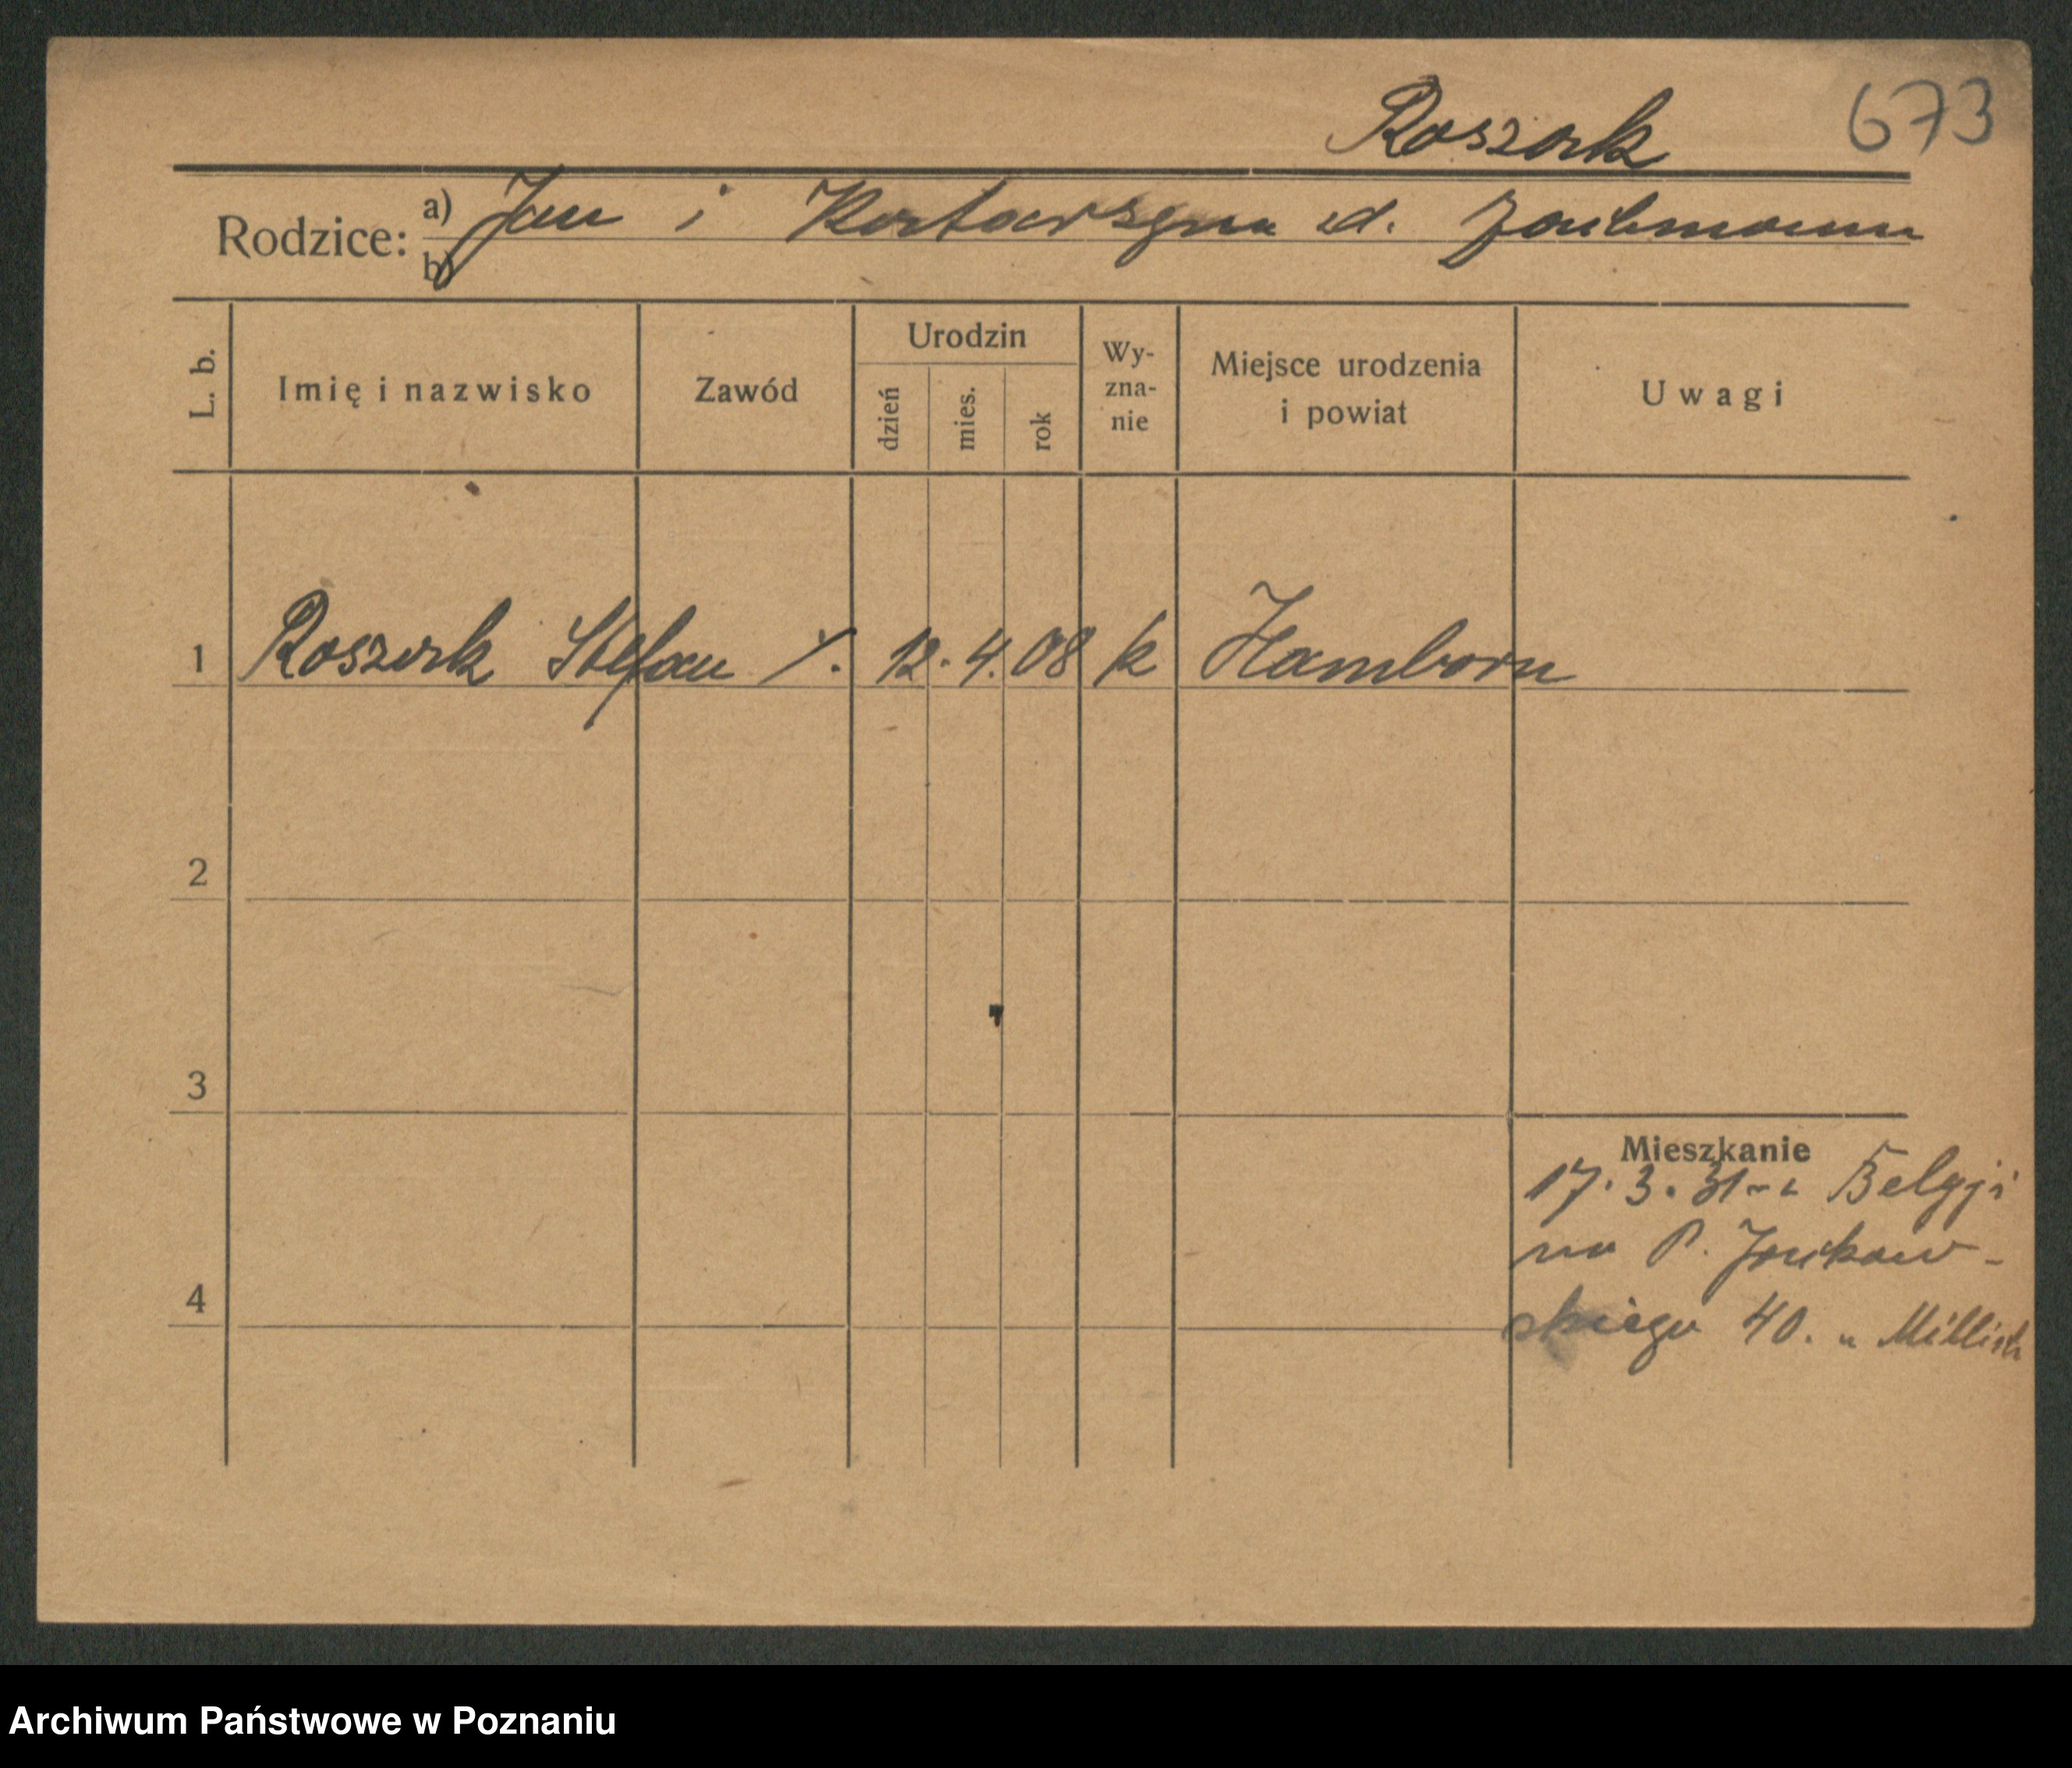 Roszak 673
Rodzice: a) Jan i Katarzyna d.
b)
L. b. Imię i nazwisko Zawód Urodzin dzień mies. rok Wyznanie Miejsce urodzenia i powiat Uwagi
1 Roszak Stefan r. 12. 4. 08 k Hamborn
2
3
Mieszkanie
17. 3. 31 z Belgji
na P.
4
skiego 40. u
Archiwum Państwowe w Poznaniu